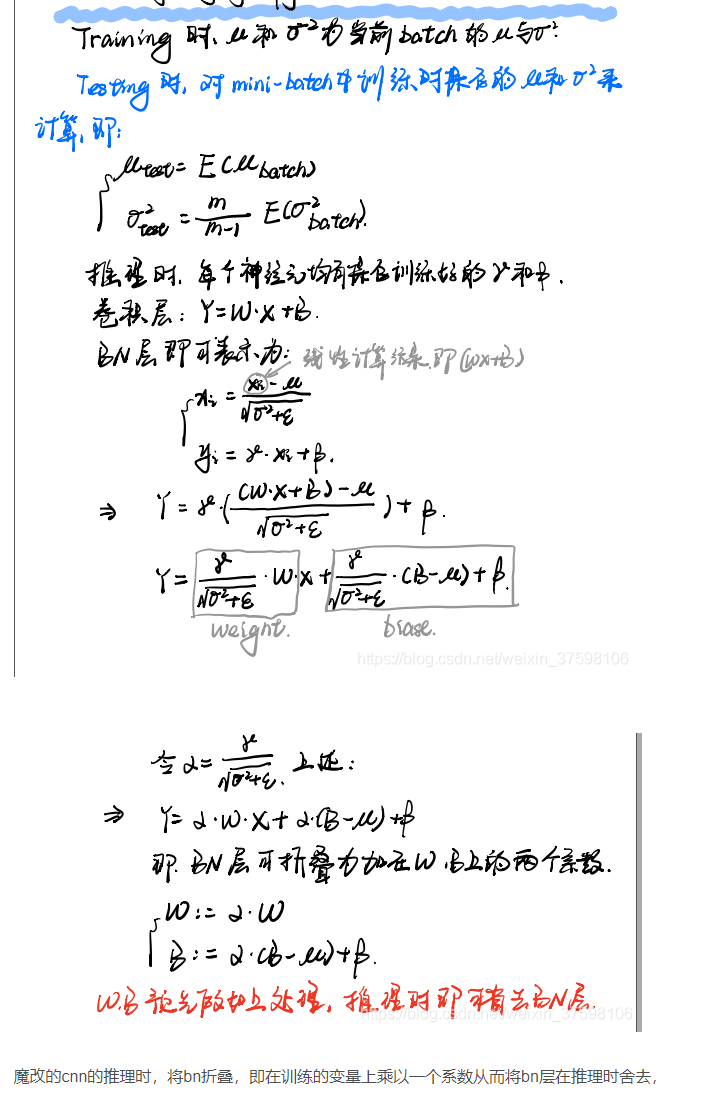 Training 时, μ 和 σ² 为当前 batch 的 μ 与 σ².
Testing 时, 对 mini-batch 中训练时保存的 μ 和 σ² 来
计算, 即:
μtest = E(μbatch)
σ²test = m/(m-1) E(σ²batch).
推理时, 每个神经元均有保存训练好的 γ 和 β.
卷积层: Y=W·X+B.
BN层即可表示为: 线性计算结果, 即(WX+B)
xᵢ = (xᵢ-μ)/√(σ²+ε)
yᵢ = γ·xᵢ+β.
⇒ Y = γ·(((W·X+B)-μ)/√(σ²+ε))+β.
Y = γ/√(σ²+ε)·W·X+γ/√(σ²+ε)·(B-μ)+β.
weight. biase.
https://blog.csdn.net/weixin_37598106
令 α = γ/√(σ²+ε). 上述:
⇒ Y = α·W·X+α·(B-μ)+β
即 BN层可折叠为加在 W, B上的两个系数.
W := α·W
B := α·(B-μ)+β.
W.B 预先做如上处理, 推理时即可省去BN层.
https://blog.csdn.net/weixin_37598106
魔改的cnn的推理时，将bn折叠，即在训练的变量上乘以一个系数从而将bn层在推理时舍去，